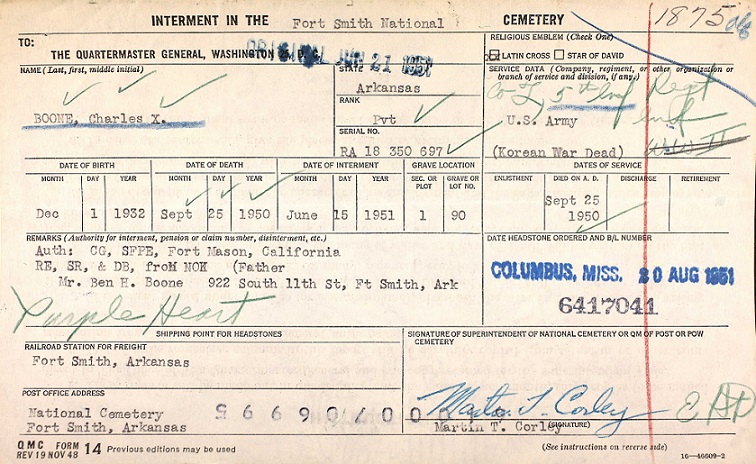 INTERMENT IN THE Fort Smith National CEMETERY 1875
TO:
THE QUARTERMASTER GENERAL, WASHINGTON 25, D. C.
ORIGINAL JUN 21 1951
RELIGIOUS EMBLEM (Check One)
LATIN CROSS STAR OF DAVID
NAME (Last, first, middle initial)
BOONE, Charles X.
STATE
Arkansas
RANK
Pvt
SERIAL NO.
RA 18 350 697
SERVICE DATA (Company, regiment, or other organization or
branch of service and division, if any)
Co L, 5th Inf Regt
U.S. Army
(Korean War Dead)
DATE OF BIRTH DATE OF DEATH DATE OF INTERMENT GRAVE LOCATION DATES OF SERVICE
MONTH DAY YEAR MONTH DAY YEAR MONTH DAY YEAR SEC. OR PLOT GRAVE OR LOT NO. ENLISTMENT DIED ON A. D. DISCHARGE RETIREMENT
Dec 1 1932 Sept 25 1950 June 15 1951 1 90 Sept 25
1950
REMARKS (Authority for interment, pension or claim number, disinterment, etc.)
Auth: CG, SFPE, Fort Mason, California
RE, SR, & DB, froM NOK (Father
Mr. Ben H. Boone 922 South 11th St, Ft Smith, Ark
Purple Heart
DATE HEADSTONE ORDERED AND B/L NUMBER
COLUMBUS, MISS. 20 AUG 1951
6417041
SHIPPING POINT FOR HEADSTONES
RAILROAD STATION FOR FREIGHT
Fort Smith, Arkansas
POST OFFICE ADDRESS
National Cemetery
Fort Smith, Arkansas
SIGNATURE OF SUPERINTENDENT OF NATIONAL CEMETERY OR QM OF POST OR POW
CEMETERY
Martin T. Corley
Martin T. Corley (SIGNATURE)
QMC FORM 14 Previous editions may be used
REV 19 NOV 48
(See instructions on reverse side)
16—46609-2